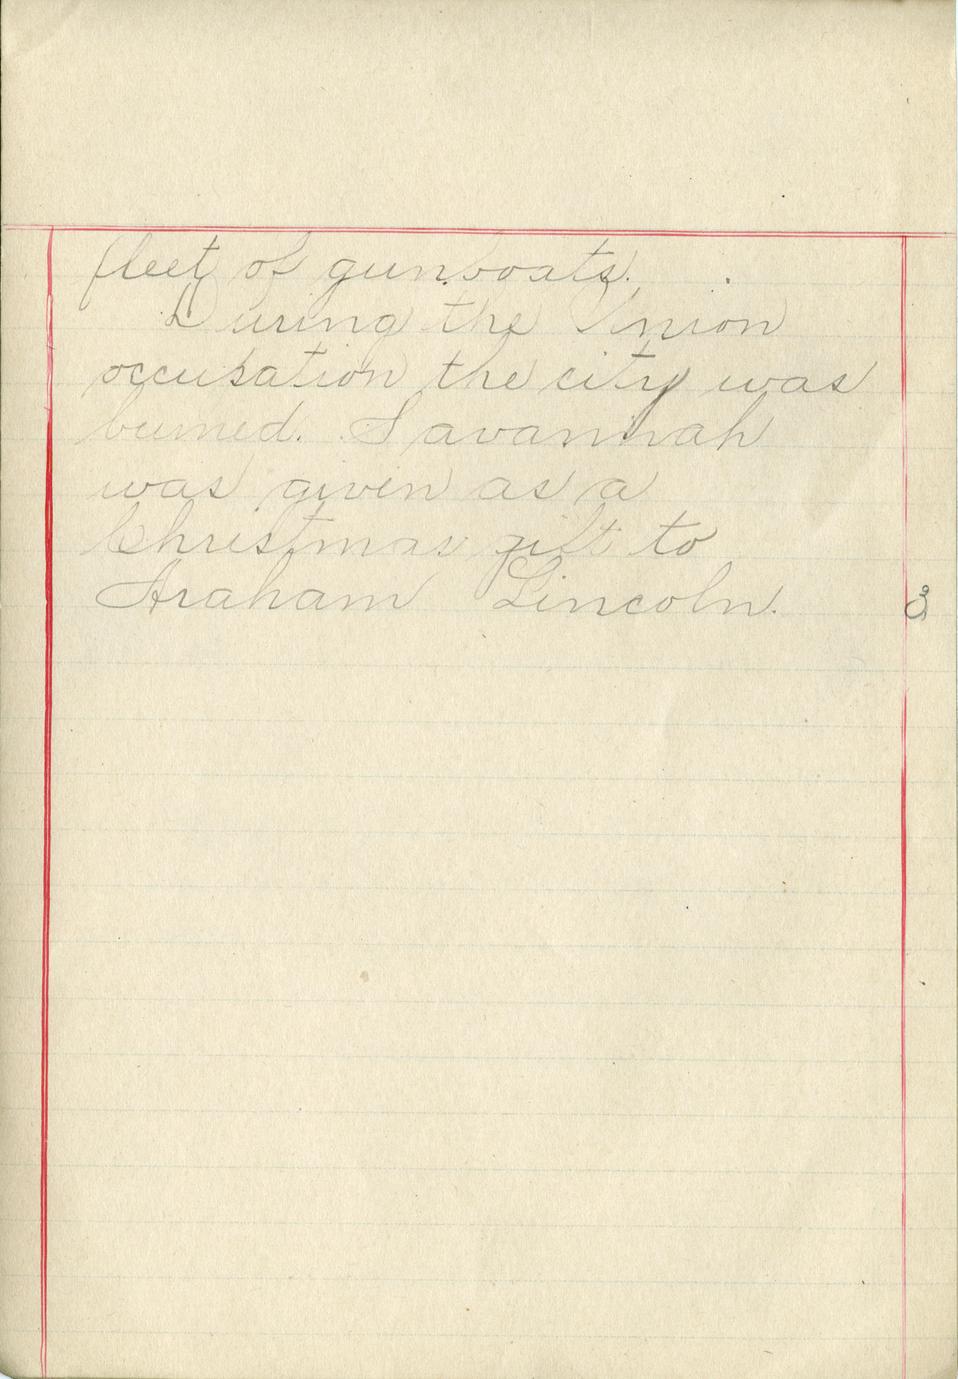 fleet of gunboats.
During the Union
occupation the city was
burned. Savannah
was given as a
Christmas gift to
Araham Lincoln.
3